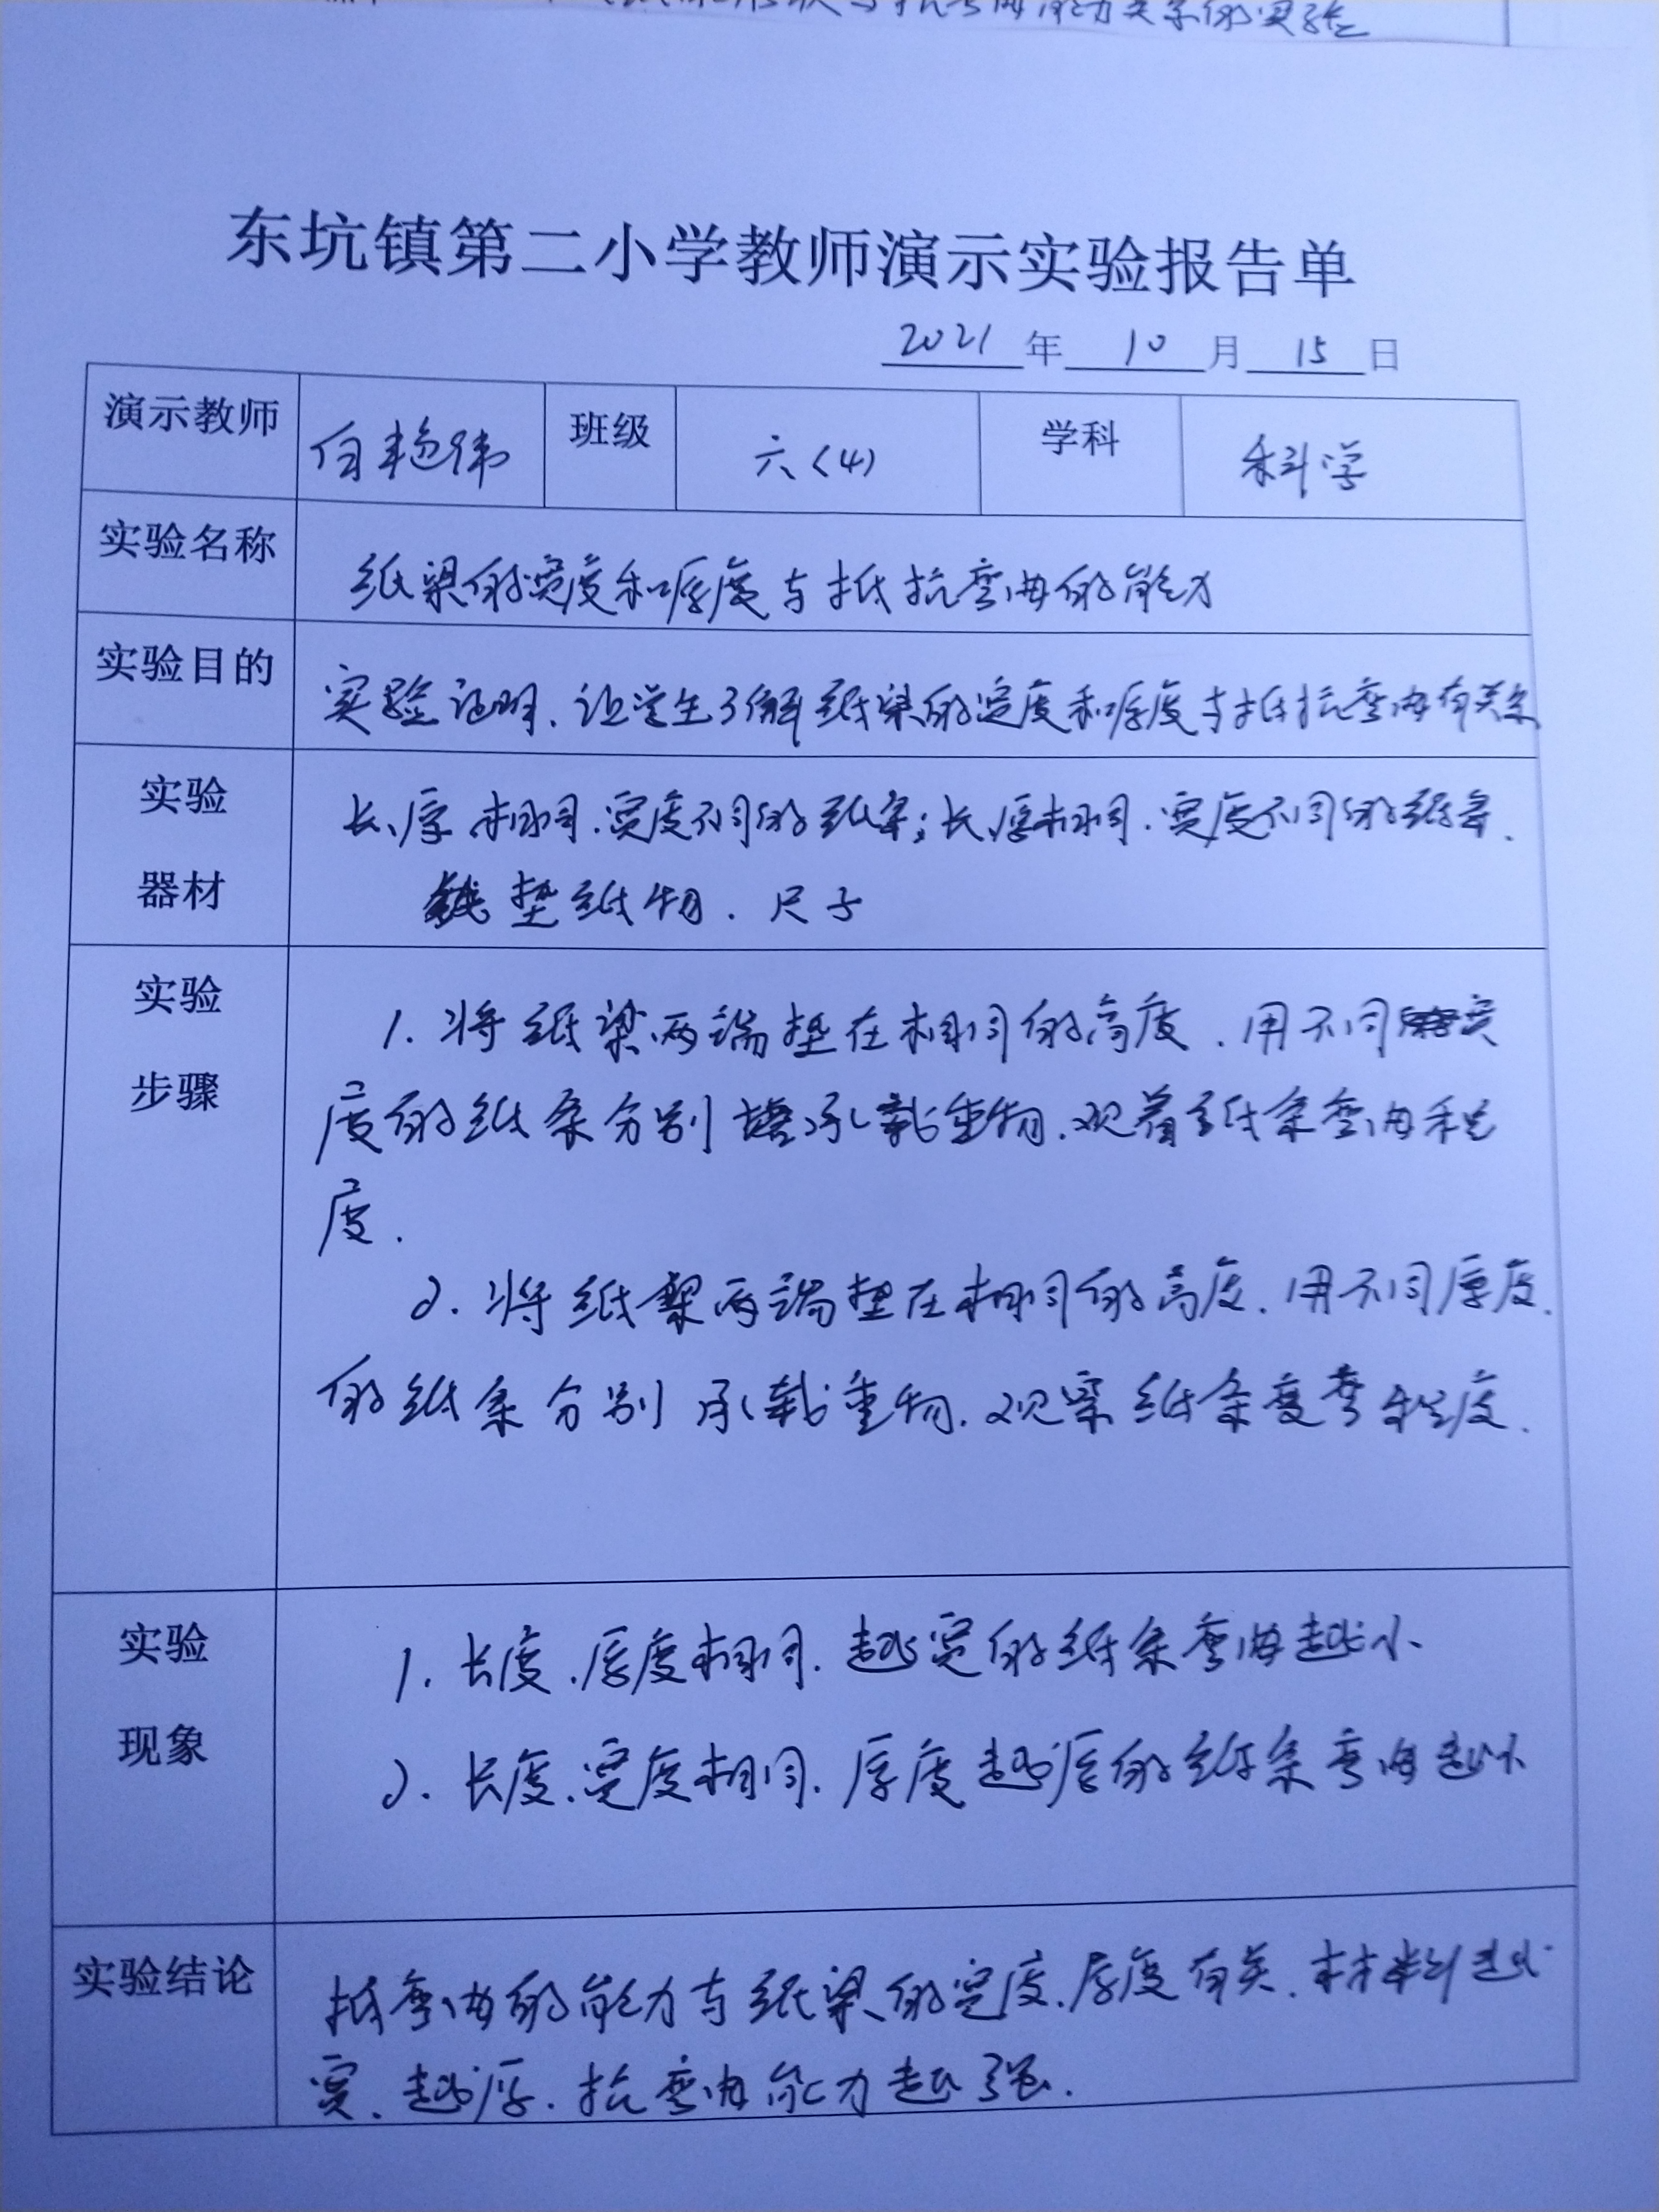 关系的实验
东坑镇第二小学教师演示实验报告单
2021 年 10 月 15 日
演示教师 白艳伟 班级 六(4) 学科 科学
实验名称 纸梁的宽度和厚度与抵抗弯曲的能力
实验目的 实验证明、让学生了解纸梁的宽度和厚度与抵抗弯曲有关系
实验 长、厚相同、宽度不同的纸条;长、厚相同、宽度不同的纸条、
器材 垫纸物、尺子
实验 1. 将纸梁两端垫在相同的高度、用不同宽
步骤 度的纸条分别承载重物、观着纸条弯曲程
度.
2. 将纸梁两端垫在相同的高度、用不同厚度
的纸条分别承载重物、观察纸条度弯程度.
实验 1. 长度、厚度相同、越宽的纸条弯曲越小
现象 2. 长度、宽度相同、厚度越厚的纸条弯曲越小
实验结论 抵弯曲的能力与纸梁的宽度、厚度有关、材料越
宽、越厚、抗弯曲能力越强.